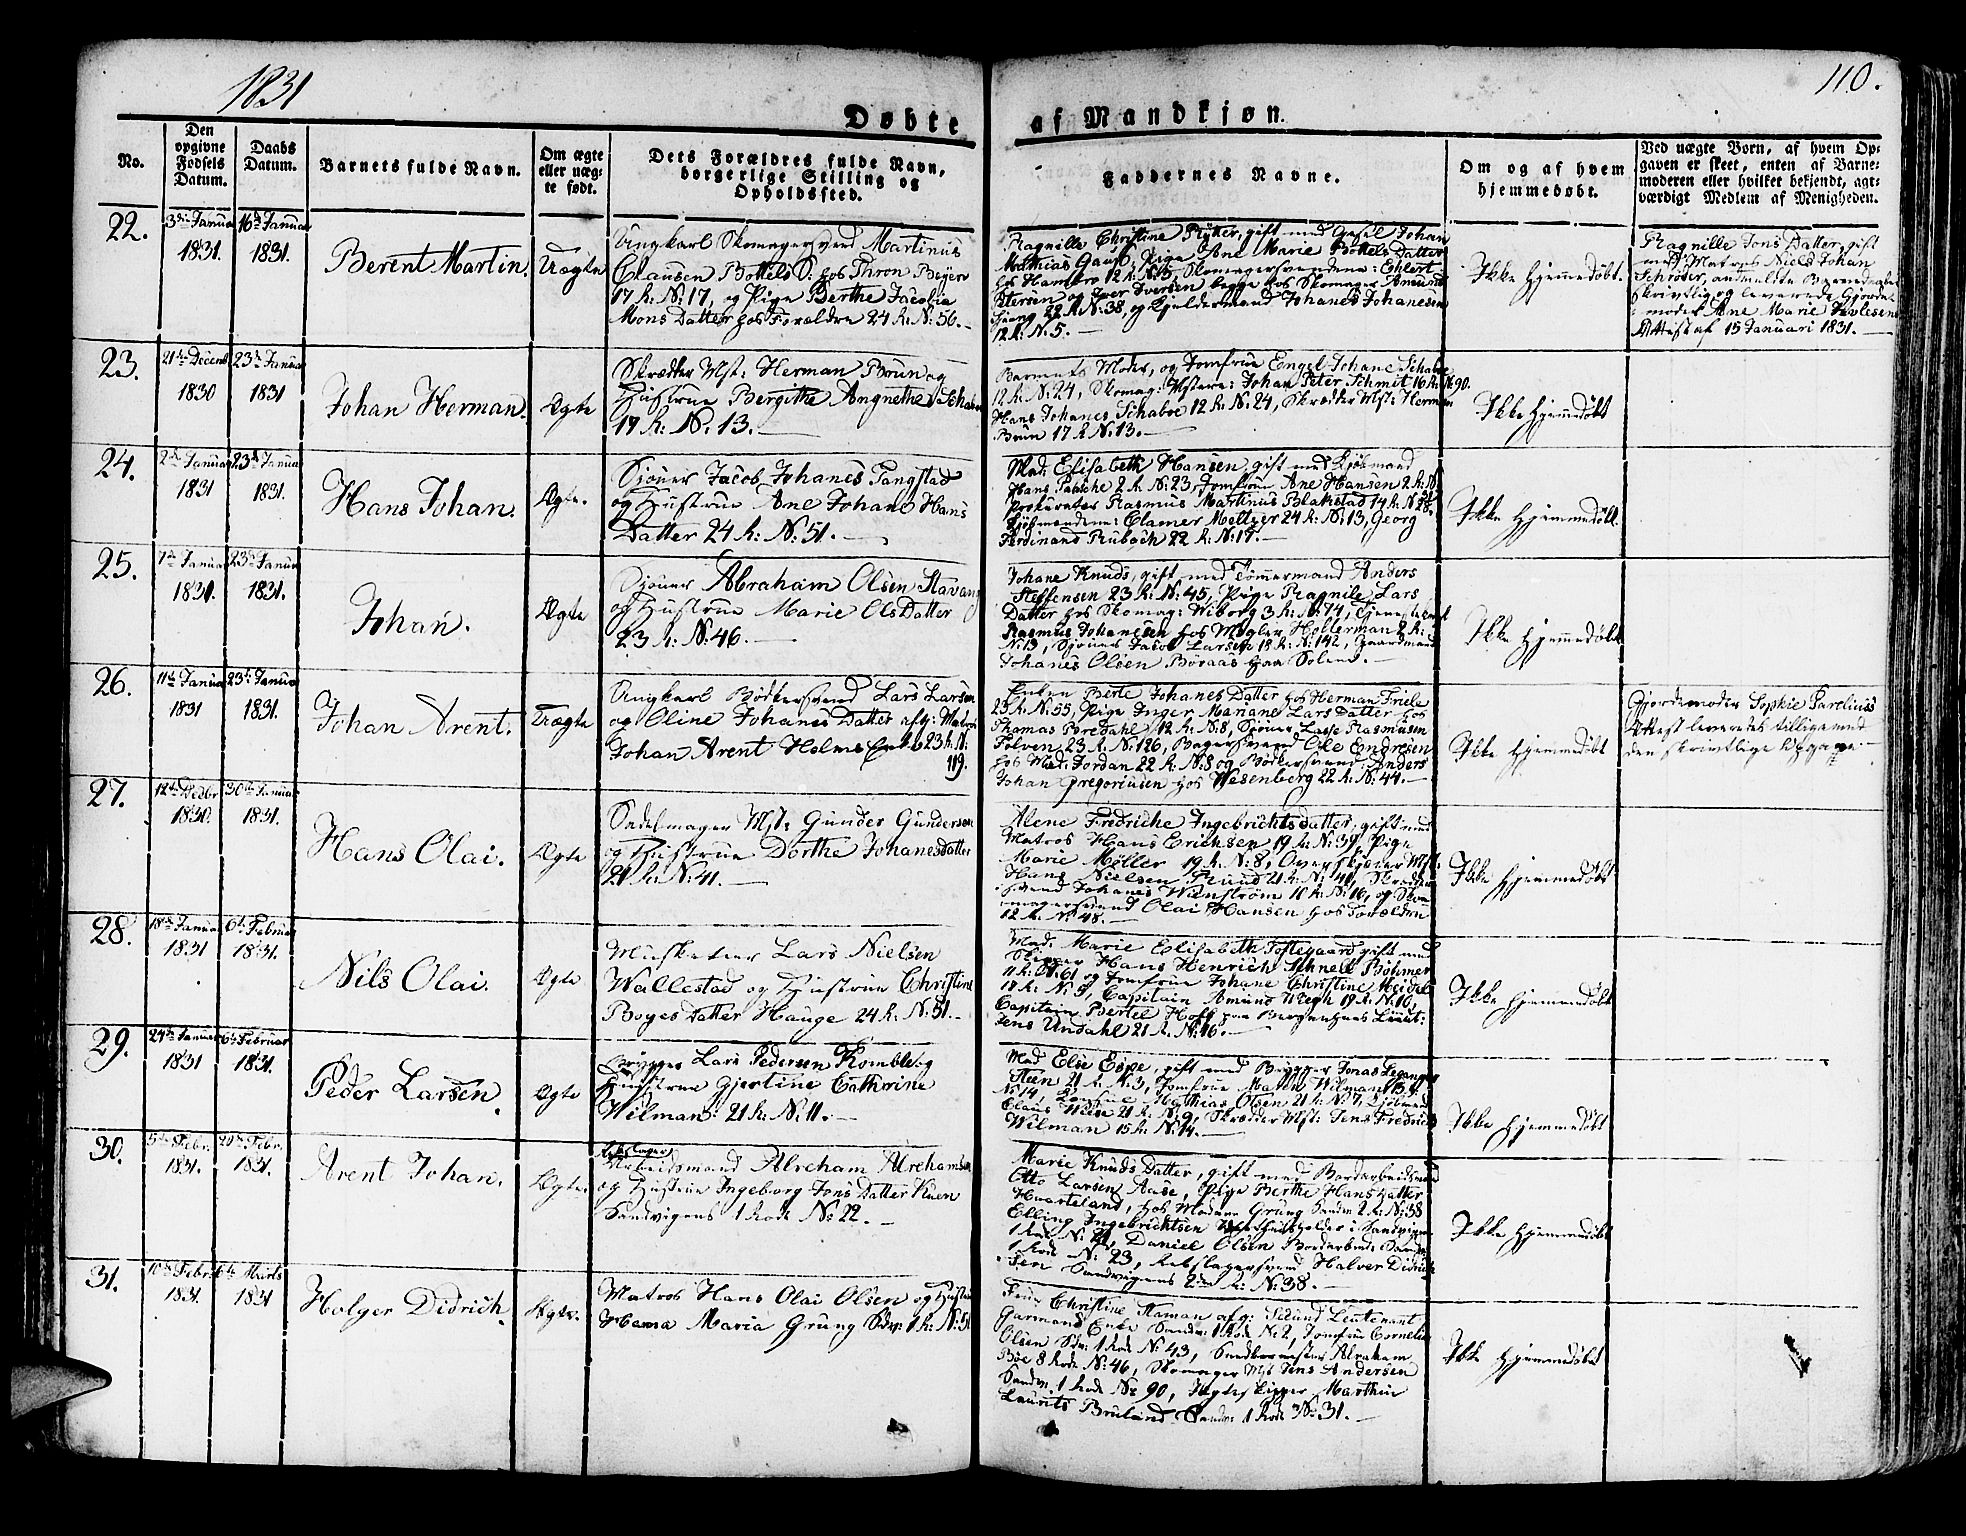 1831
110.
Døbte af Mandkjøn.
No.
Den opgivne Fødsels Datum.
Daabs Datum.
Barnets fulde Navn.
Om ægte eller uæg-
te født.
Dets Forældres fulde Navn,
borgerlige Stilling og
Opholdssted.
Faddernes Navne.
Om og af hvem
hjemmedøbt.
Ved uægte Børn, af hvem Op-
gaven er skeet, enten af Barne-
moderen eller hvilket bekjendt, agt-
værdigt Medlem af Menigheden.
22.
3die Januar
1831.
16de Januar
1831.
Berent Martin.
Uægte
Ungkarl Skomagersvend Martinus
Clausen Bottels S. hos Thron Beyer
17 R: N: 17, og Pige Berthe Jacobia
Mons Datter hos Forældre 24 R: N: 56.
Ragnille Christine Rütter, gift med Gesel Johan
Mathias Gaus, Pige Ane Marie Bottels Datter
hos Hambro 12 R. N. 5, Skomagersvendene: Ehlert
Petersen og Iver Iversen begge hos Skomager Amund
22 R. N: 38, og Kjeldermand Johanes Johanesen
12 R. N. 5.
Ikke hjemmedøbt.
Ragnille Jons Datter, gift
med Matros Niels Johan
Schrøder, anmeldte Barnet
skrivtlig og leverede Gjorde-
moder Ane Marie
Attest af 15 Januari 1831.
23.
21de Decemb
1830
23de Januar
1831
Johan Herman.
Ægte
Skrædder Mst: Herman Brun og
Hustrue Bergithe Angnethe Schaboe
17 R: N. 13.
Barnets Moder, og Jomfrue Engel Johane Schaboe
12 R. N. 24, Skomag: Mstere: Johan Peter Schmit 16 R. N. 90.
Hans Johanes Schaboe 12 R: N: 24, Skrædder Mst: Herman
Brun 17 R N. 13.
Ikke hjemmedøbt
24.
2den Januar
1831
23de Januar
1831.
Hans Johan.
Ægte.
Sjouer Jacob Johanes Tangstad
og Hustrue Ane Johane Hans
Datter 24 R: N: 51.
Mad: Elisabeth Hansen gift med Kjøbmand
Hans 2 R. N: 23, Jomfrue Ane Hansen 2 R: N
Prokurator Rasmus Martinus Blakstad 14 R. N 28.
Kjøbmændene: Clamer Meltzer 24 R: N: 13, Georg
Ferdinand Rubach 22 R. N: 17.
Ikke hjemmedøbt.
25.
7de Januar
1831.
23de Januar
1831.
Johan.
Ægte
Sjouer Abraham Olsen Stavang
og Hustrue Marie Ols Datter
23 R. N: 46.
Johane Knuds, gift med Tømmermand Anders
Steffensen 23 R: N: 45, Pige Ragnile Lars
Datter hos Skomag: Wiborg 3 R. N: 74, Tjenestekarl
Rasmus Johanesen hos Mægler Hollerman 2 R:
N: 13, Sjouer Jacob Larsen 18 R: N: 142, Gaardmand
Johanes Olsen Boraas paa Solend.
Ikke hjemmedøbt
26.
11te Januar
1831
23de Januar
1831.
Johan Arent.
Uægte
Ungkarl Bødkersvend Lars Larsen
og Oline Johanes Datter afg: Matros
Johan Arent Holms Enke 23 R. N:
119.
Enken Berte Johanes Datter hos Herman Friele
23 R. N: 55, Pige Inger Mariane Lars Datter hos
Thomas Bredahl 12 R. N: 8, Sjouer Lasse Rasmusen
Folven 23 R. N: 126, Bagersvend Ole Endresen
hos Mad: Jordan 22 R: N: 8 og Bødkersvend: Anders
Johan Gregoriusen hos Wesenberg 22 R. N: 44.
Ikke hjemmedøbt
Gjordemoder Sophie Parelius
Attest leveretes tillige med
den skrivtlige Opgave
27.
12te Decbr
1830.
30te Januar
1831.
Hans Olai.
Ægte
Sadelmager Mst: Gunder Gundersen
og Hustrue Dorthe Johanesdatter
21 R: N: 41.
Alene Fredriche Ingebrichtsdatter, gift med
Matros Hans Erichsen 19 R: N: 39, Pige
Marie Møller 19 R. N: 8, Mst:
Hans Nielsen Rund 21 R: N: 40, Skrædder-
svend Johanes Wenstrøm 10 R. N: 16, og Sko-
magersvend Olai Hansen hos Forældre
12 R. N: 48.
Ikke hjemmedøbt
28.
18de Januar
1831
6te Februar
1831.
Nils Olai.
Ægte
Musketeer Lars Nielsen
Wallestad og Hustrue Christine
Boyes Datter Hauge 24 R: N: 51.
Mad. Marie Elisabeth Toftegaard gift med
Skipper Hans Henrich Schnell Bøhmer
11 R: N: 61 og Jomfrue Johane Christine Meidel
18 R: N: 5, Capitain Amund Wegh 19 R. N: 10,
Capitain Bertel Hoff paa Bergenhuus Lieut:
Jens Undahl 21 R. N: 16.
Ikke hjemmedøbt
29.
24de Januar
1831
6te Februar
1831.
Peder Larsen.
Ægte
Brygger Lars Pedersen Komble og
Hustrue Gjertine Cathrine
Wilman: 21 R: N: 11.
Mad Else Espe, gift med Brygger Jonas Leganger
Steen 21 R. N. 3, Jomfrue Wilman 15 R.
N: 14, Mathias Olsen 21 R. N: 7, Kjøbmand
Claus Wiese 21 R. N: 9, Skrædder Mst: Jens Fredrich
Wilman 15 R: N: 14.
Ikke hjemmedøbt
30.
5te Febr.
1831.
20de Febr.
1831.
Arent Johan.
Ægte.
Rebslager
Arbeidsmand Abraham Abrahamsen
og Hustrue Ingeborg Jons Datter Kuen
Sandvigens 1 Rode No 22.
Marie Knuds Datter, gift med Bordarbeidsmand
Otto Larsen Aase, Pige Berthe Hans Datter
Huarteland, hos Madame Grung Sandv 2 R: N: 38
Elling Ingebrichtsen Huusholder i Sandvigen
1 Rode N: 21, Daniel Olsen Bordarbeid: Sandv
1 Rode N: 23, Rebslagersvend Halver Didrich-
sen Sandvigens 2den R: N: 38.
Ikke hjemmedøbt
31.
10de Febr
1831.
6te Marts
1831
Holger Didrich.
Ægte.
Matros Hans Olai Olsen og Hustrue
Hanna Maria Grung Sdv: 1 R: N: 51
Frue Christine Haman afg: Seilund Lieutenant
Garmans Enke Sandv: 1 Rode N: 2, Jomfrue Cornelia
Olsen Sdv: 1 Rode N: 43, Abraham
Bøe 8 Rode N: 46, Skomager Mst Jens Andersen
Sandv. 1 Rode No 90, Martin
Laurits Bruland. Sandv: 1 Rode No 31.
Ikke hjemmedøbt